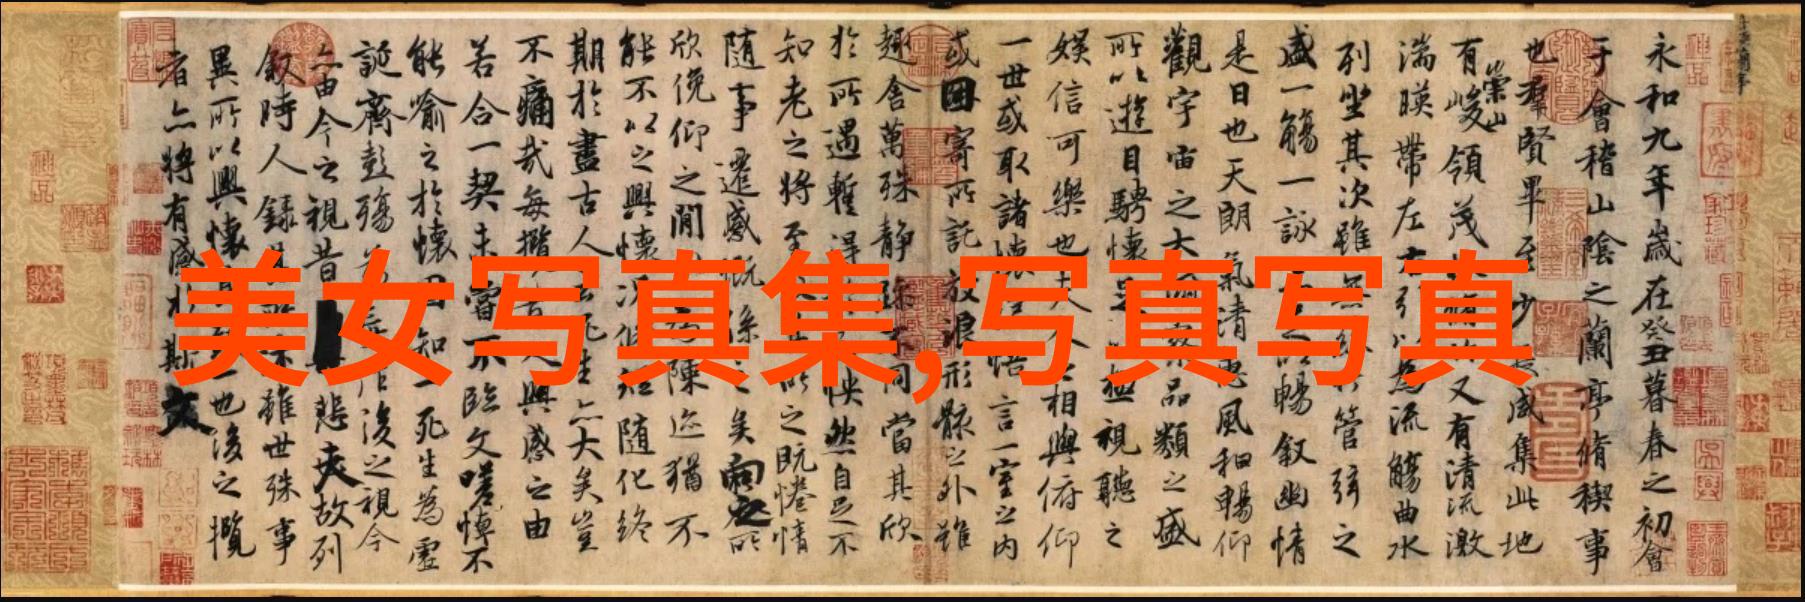 美女写真集,写真写真
永和九年歲在癸丑暮春之初會
于會稽山陰之蘭亭脩稧事
也羣賢畢至少長咸集此地
有崇山峻領茂林脩竹又有清流激
湍暎帶左右引以為流觴曲水
列坐其次雖無絲竹管弦之
盛一觴一詠亦足以暢叙幽情
是日也天朗氣清惠風和暢仰
觀宇宙之大俯察品類之盛
所以遊目騁懷足以極視聽之
娛信可樂也夫人之相與俯仰
一世或取諸懷抱悟言一室之內
或因寄所託放浪形骸之外雖
趣舍萬殊靜躁不同當其欣
於所遇蹔得於己怏然自足不
知老之將至及其所之既惓情
隨事遷感慨係之矣向之所
欣俛仰之閒以為陳迹猶不
能不以之興懷況脩短隨化終
期於盡古人云死生亦大矣豈
不痛哉每攬昔人興感之由
若合一契未嘗不臨文嗟悼不
能喻之於懷固知一死生為虛
誕齊彭殤為妄作後之視今
亦由今之視昔悲夫故列
叙時人錄其所述雖世殊事
異所以興懷其致一也後之攬
者亦將有感於斯文